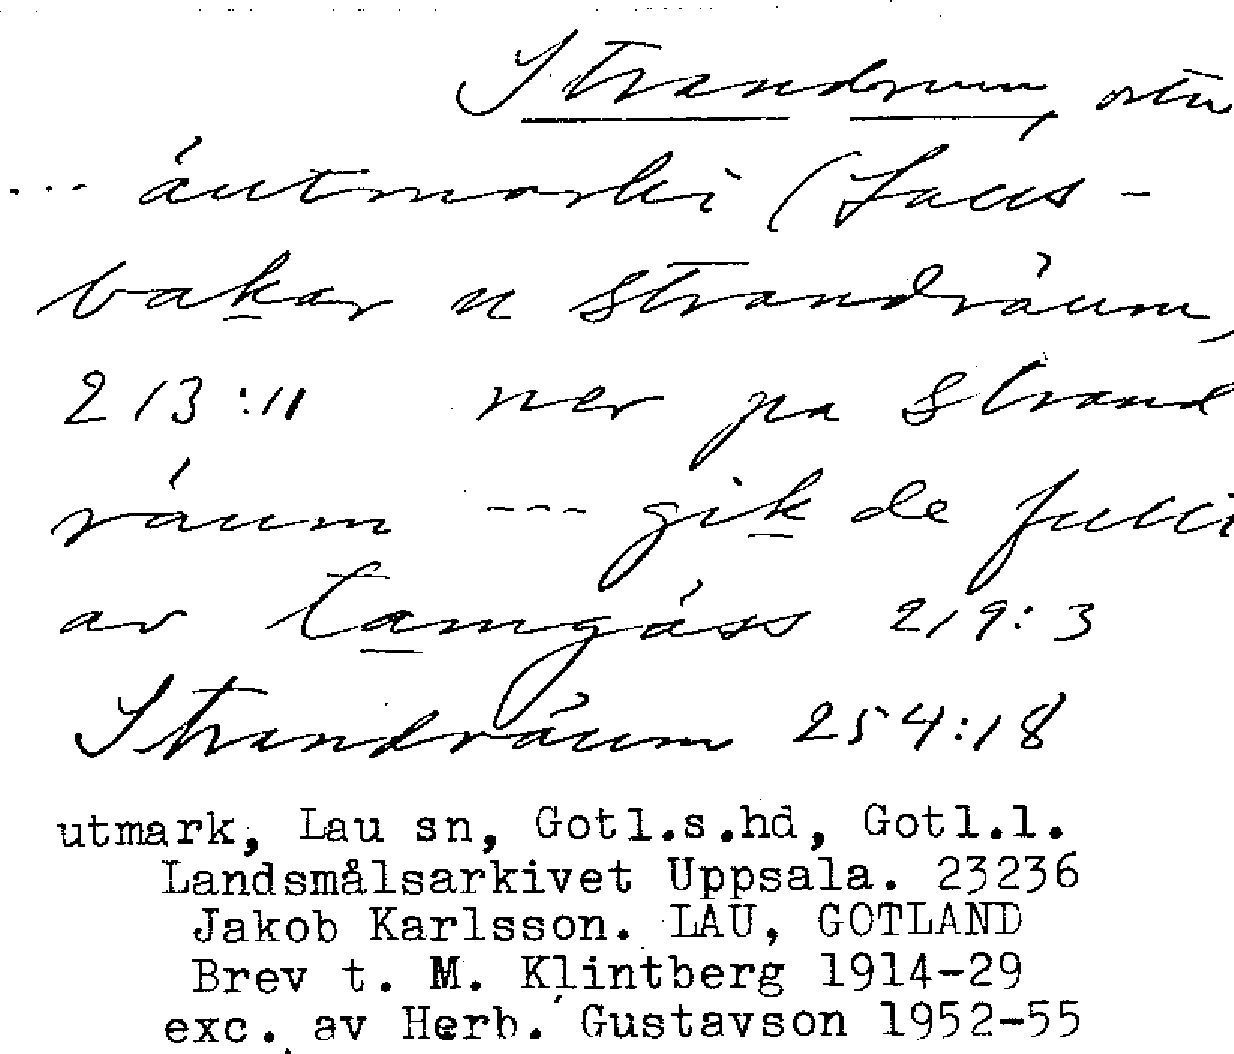 Strandrum, ortn
... áutmarki (Laus-
bakar u strandráum,
213:11 ner pa strand
ráum --- gik de fulli
av tamgáss 219:3
Strandráum 254:18
utmark, Lau sn, Gotl.s.hd, Gotl.l.
Landsmålsarkivet Uppsala. 23236
Jakob Karlsson. LAU, GOTLAND
Brev t. M. Klintberg 1914-29
exc. av Herb. Gustavson 1952-55